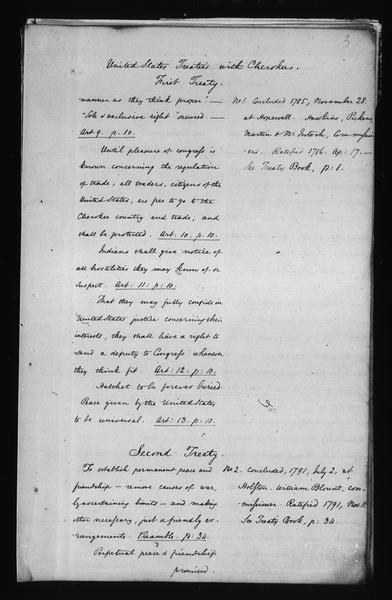 3
United States Treaties with Cherokees.
First Treaty.
manner as they think proper" —
"Sole & exclusive right" secured. —
Art 9. p. 10.
Until pleasure of congress is
known concerning the regulation
of trade, all traders, citizens of the
United States, are free to go to the
Cherokee country and trade, and
shall be protected. Art: 10. p. 10.
Indians shall give notice of
all hostilities they may know of or
suspect. Art: 11: p: 10.
That they may fully confide in
United States justice concerning their
interests, they shall have a right to
send a deputy to Congress whenever
they think fit. Art: 12: p: 10.
Hatchet to be forever buried
Peace given by the United States
to be universal. Art: 13. p: 10.
No 1. Concluded 1785, November 28.
at Hopewell. Hawkins, Pickens,
Martin & McIntosh, Commission-
ers. Ratified 1786. Ap: 17. —
See Treaty Book, p: 1.
Second Treaty.
To establish permanent peace and
friendship — remove causes of war,
by ascertaining limits — and making
other necessary, just & friendly ar-
rangements. Preamble. p: 34.
Perpetual peace & friendship
promised.
No 2. concluded, 1791, July 2, at
Holston. William Blount, com-
missioner. Ratified 1791, Nov. 11.
See Treaty Book, p: 34.